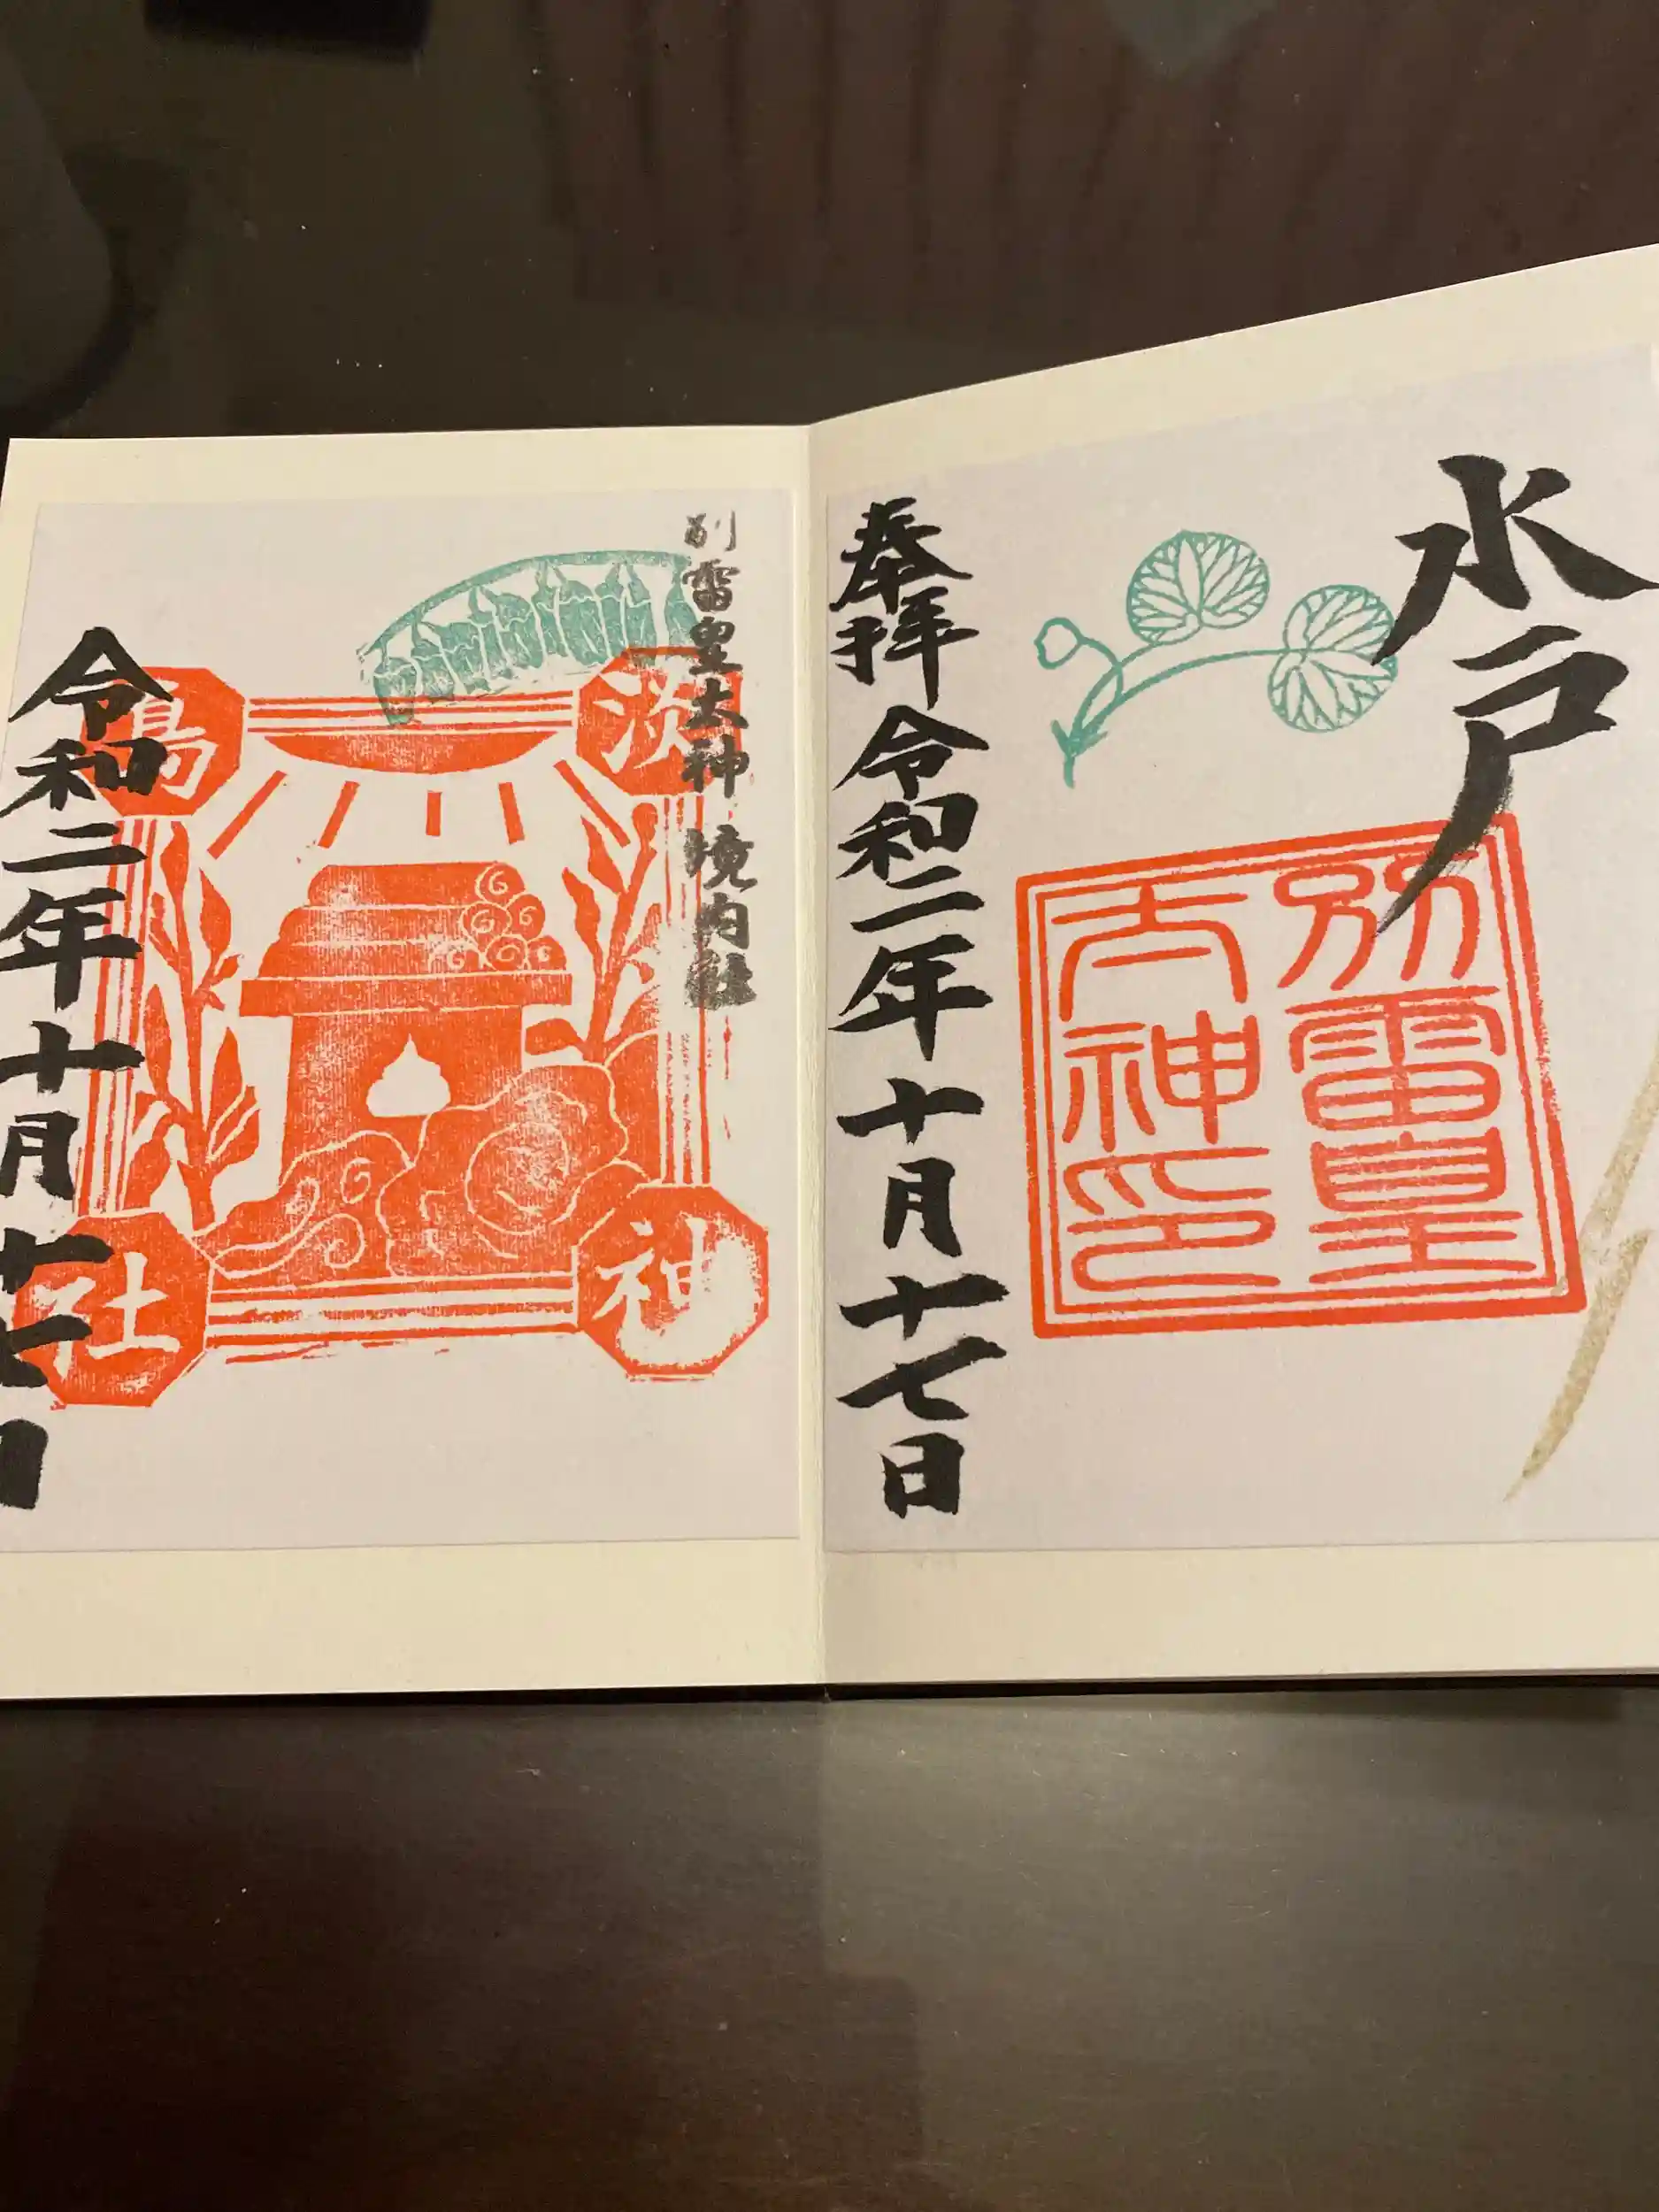 水戸
別雷皇
大神印
奉拝 令和二年 十月 十七日
別雷皇大神 境内社
淡島
神社
令和二年 十月 十七日